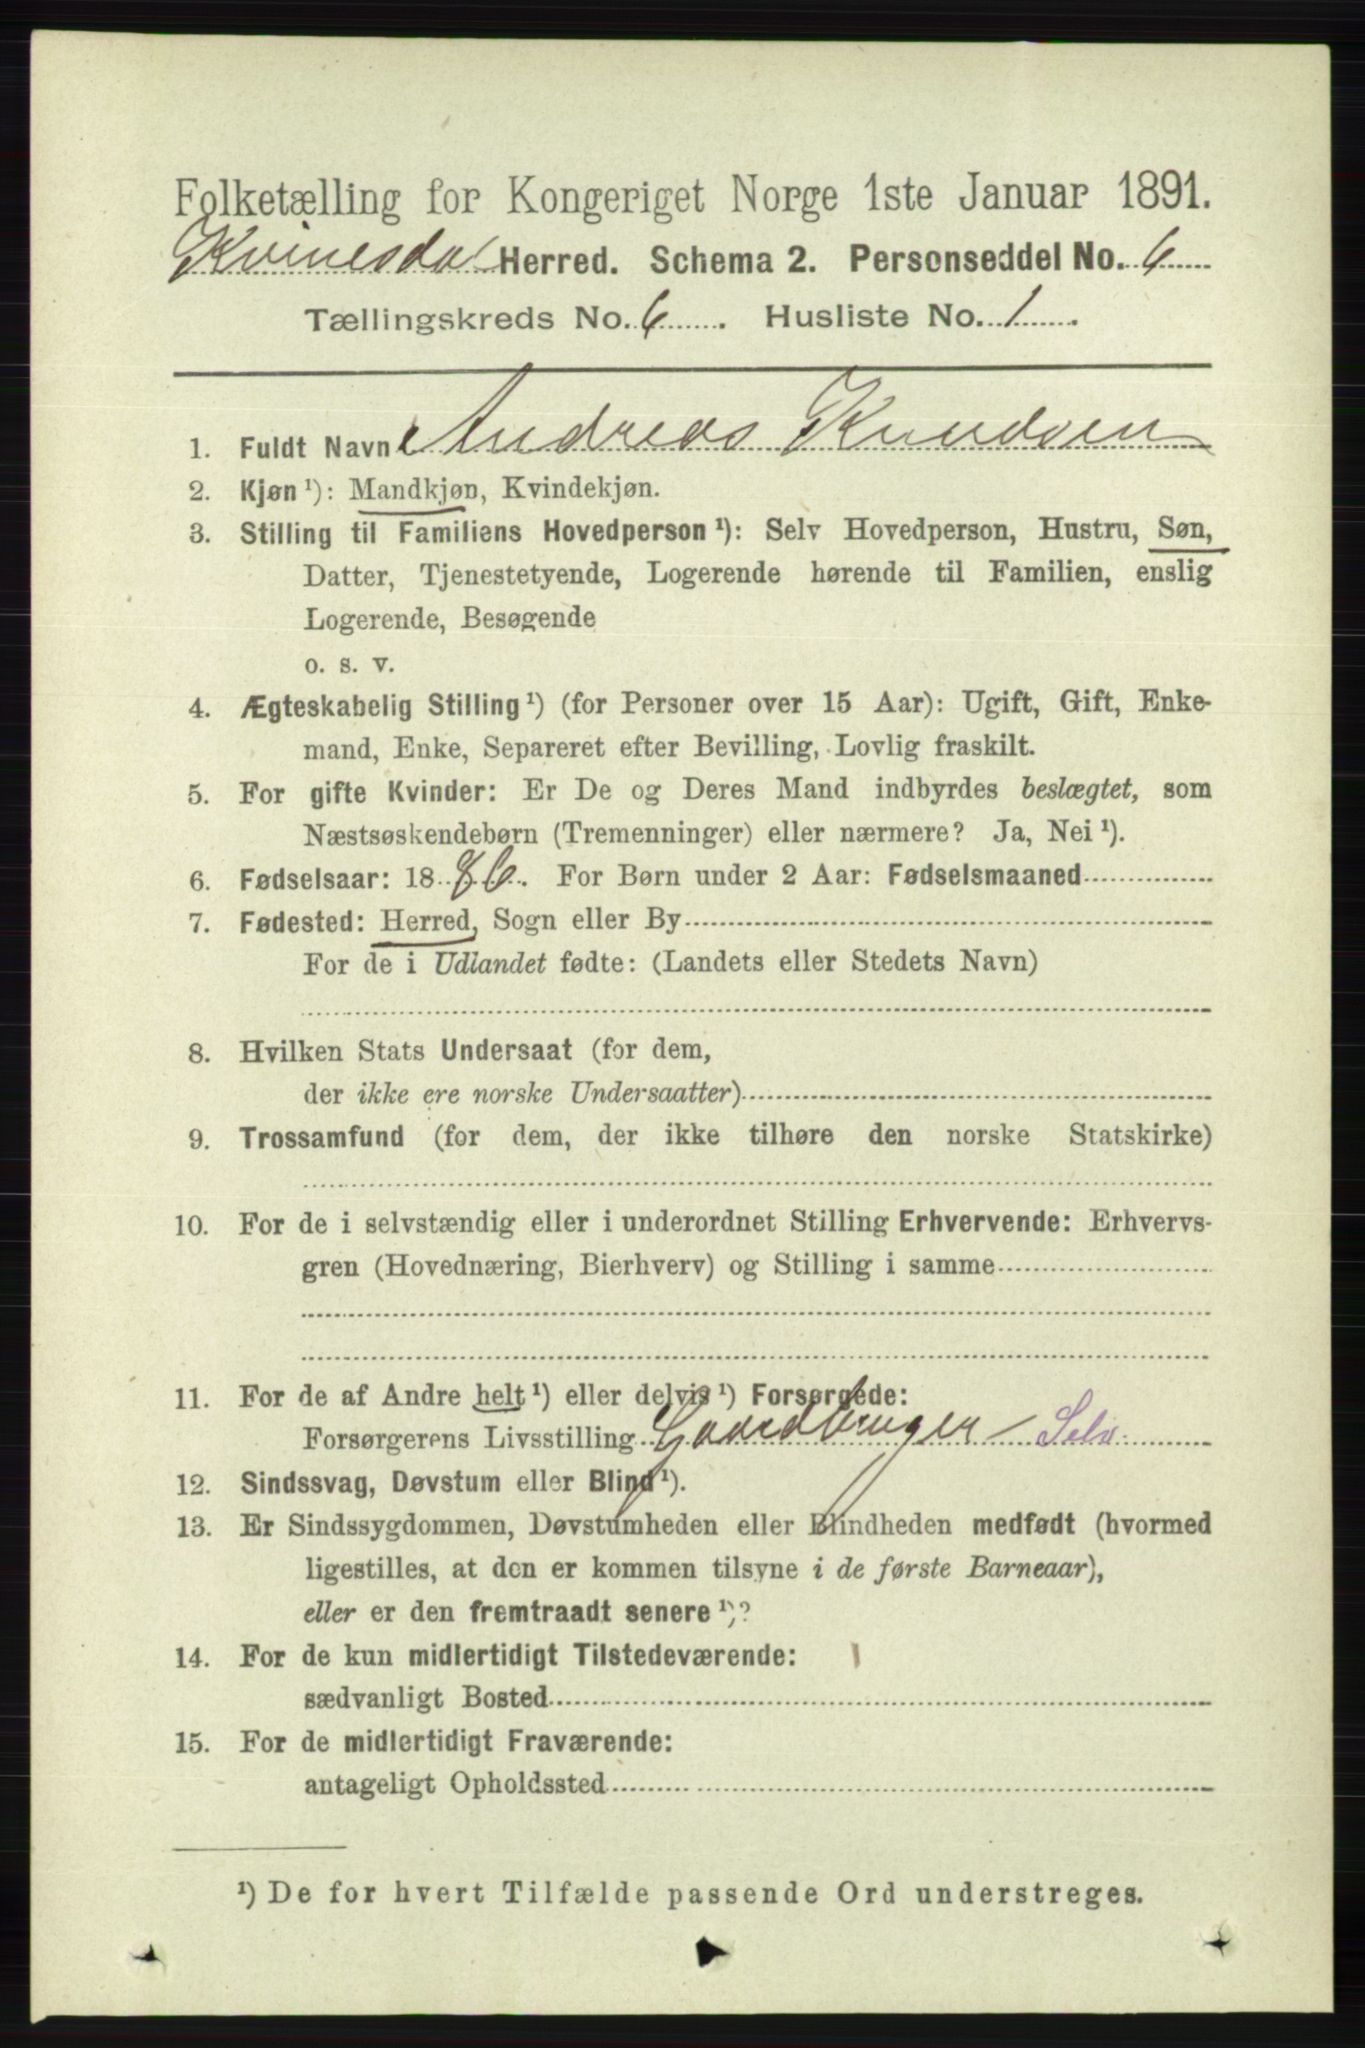 Folketælling for Kongeriget Norge 1ste Januar 1891.
Kvinesdal Herred. Schema 2. Personseddel No. 6
Tællingskreds No. 6. Husliste No. 1.
1. Fuldt Navn Andreas Knudsen
2. Kjøn ¹): Mandkjøn, Kvindekjøn.
3. Stilling til Familiens Hovedperson ¹): Selv Hovedperson, Hustru, Søn,
Datter, Tjenestetyende, Logerende hørende til Familien, enslig
Logerende, Besøgende
o. s. v.
4. Ægteskabelig Stilling ¹) (for Personer over 15 Aar): Ugift, Gift, Enke-
mand, Enke, Separeret efter Bevilling, Lovlig fraskilt.
5. For gifte Kvinder: Er De og Deres Mand indbyrdes beslægtet, som
Næstsøskendebørn (Tremenninger) eller nærmere? Ja, Nei ¹).
6. Fødselsaar: 1886. For Børn under 2 Aar: Fødselsmaaned
7. Fødested: Herred, Sogn eller By
For de i Udlandet fødte: (Landets eller Stedets Navn)
8. Hvilken Stats Undersaat (for dem,
der ikke ere norske Undersaatter)
9. Trossamfund (for dem, der ikke tilhøre den norske Statskirke)
10. For de i selvstændig eller i underordnet Stilling Erhvervende: Erhvervs-
gren (Hovednæring, Bierhverv) og Stilling i samme
11. For de af Andre helt ¹) eller delvis ¹) Forsørgede:
Forsørgerens Livsstilling Gaardbruger Selv.
12. Sindssvag, Døvstum eller Blind ¹).
13. Er Sindssygdommen, Døvstumheden eller Blindheden medfødt (hvormed
ligestilles, at den er kommen tilsyne i de første Barneaar),
eller er den fremtraadt senere ¹)?
14. For de kun midlertidigt Tilstedeværende:
sædvanligt Bosted
15. For de midlertidigt Fraværende:
antageligt Opholdssted
¹) De for hvert Tilfælde passende Ord understreges.